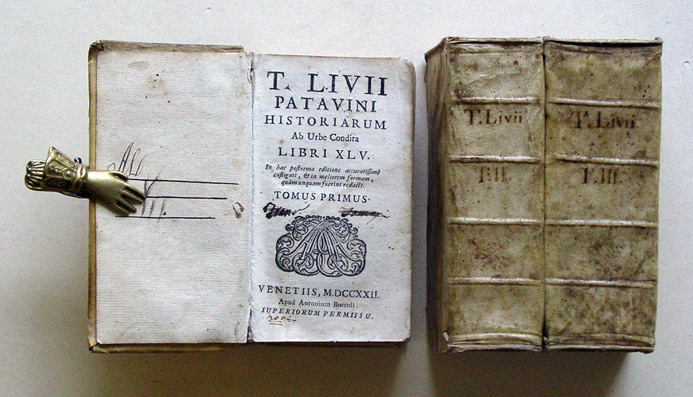 T. LIVII
PATAVINI
HISTORIARUM
Ab Urbe Condita
LIBRI XLV.
In hac postrema editione accuratissimè
castigati, & in meliorem formam,
quàm unquam fuerint redacti.
TOMUS PRIMUS.
VENETIIS, M.DCCXXII.
Apud Antonium Bortoli.
SUPERIORUM PERMISSU.
T. Livii
T. II.
T. Livii
T. III.